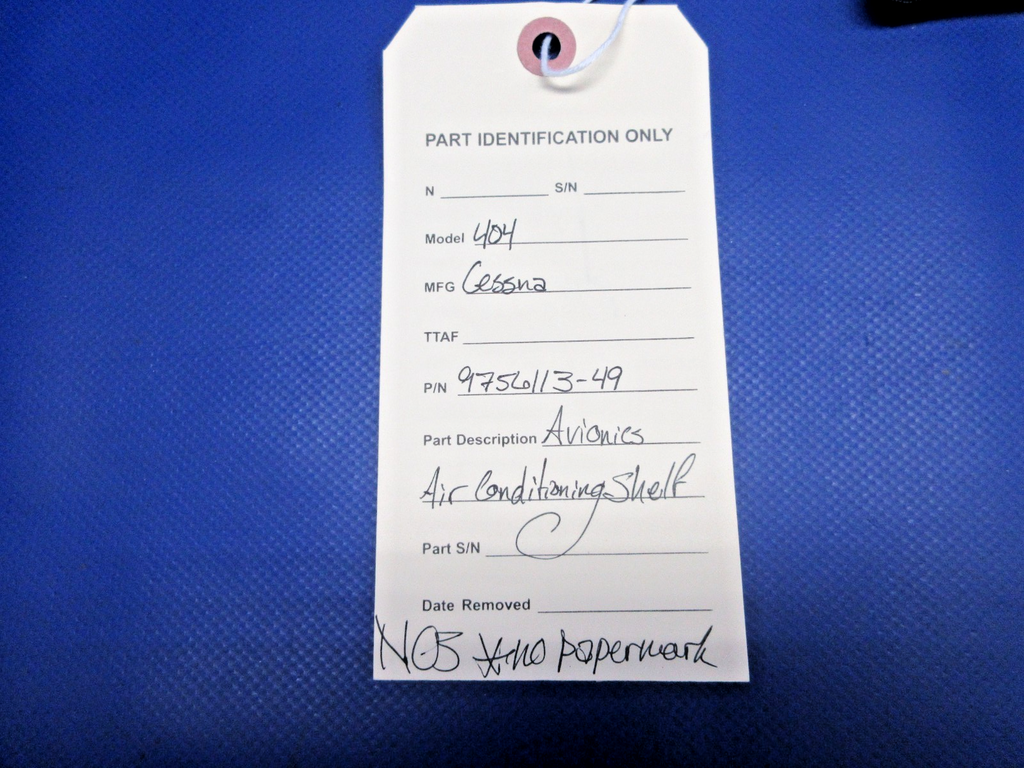 PART IDENTIFICATION ONLY
N S/N
Model 404
MFG Cessna
TTAF
P/N 9756113-49
Part Description Avionics
Air Conditioning Shelf
Part S/N
Date Removed
NOS *no papermark